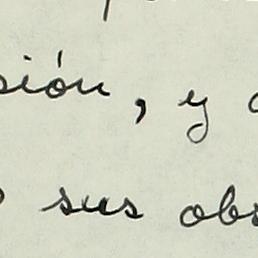 sión, y
sus obs